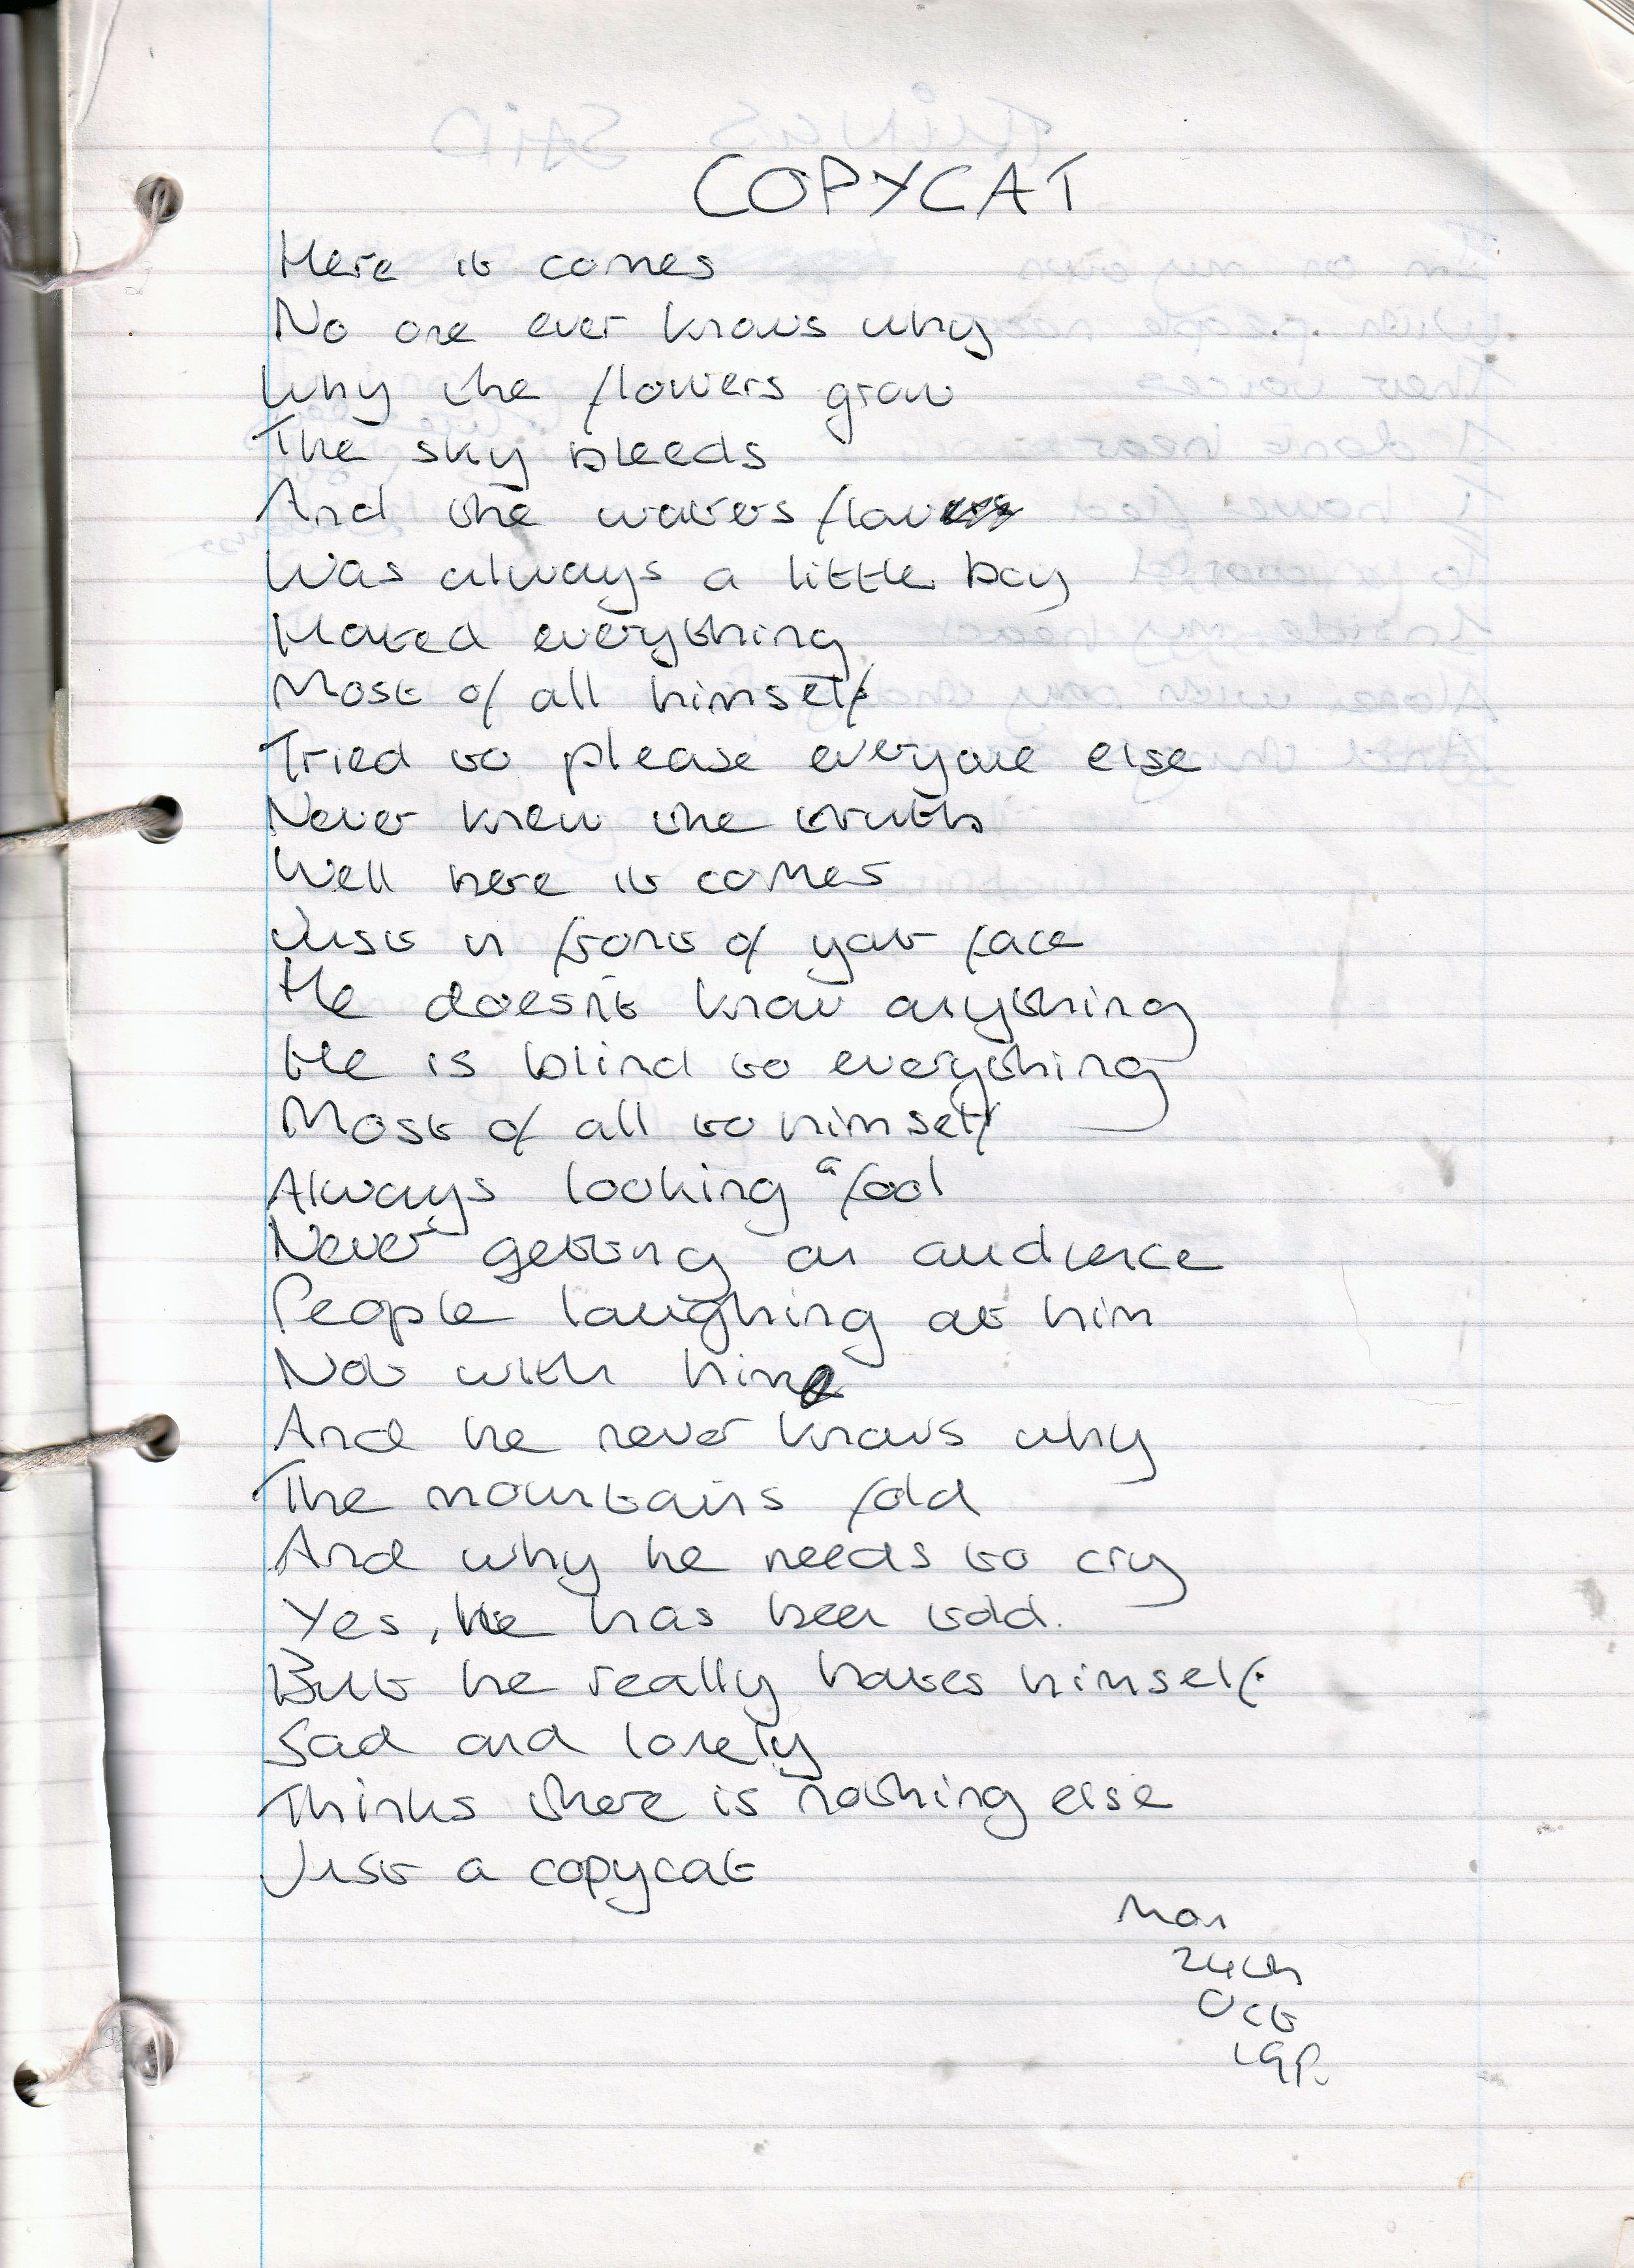 COPYCAT
Here it comes
No one ever knows why
Why the flowers grow
The sky bleeds
And the waters flow
Was always a little boy
Hated everything
Most of all himself
Tried to please everyone else
Never knew the truth
Well here it comes
Just in front of your face
He doesn't know anything
He is blind to everything
Most of all to himself
Always looking a fool
Never getting an audience
People laughing at him
Not with him
And he never knows why
The mountains fold
And why he needs to cry
Yes, he has been told.
But he really hates himself
Sad and lonely
Thinks there is nothing else
Just a copycat
Mon
24th
Oct